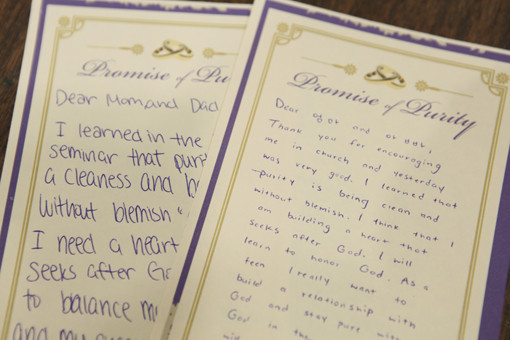 Promise of Pu
Dear Mom and Dad
I learned in the
seminar that pur
a cleaness and b
without blemish
I need a heart
seeks after Go
to balance m
and my
Promise of Purity
Dear
Thank you for encouraging
me in church and yesterday
was very good. I learned that
purity is being clean and
without blemish. I think that I
am building a heart that
seeks after God. I will
learn to honor God. As a
teen I really want to
build a relationship with
God and stay pure with
God in the